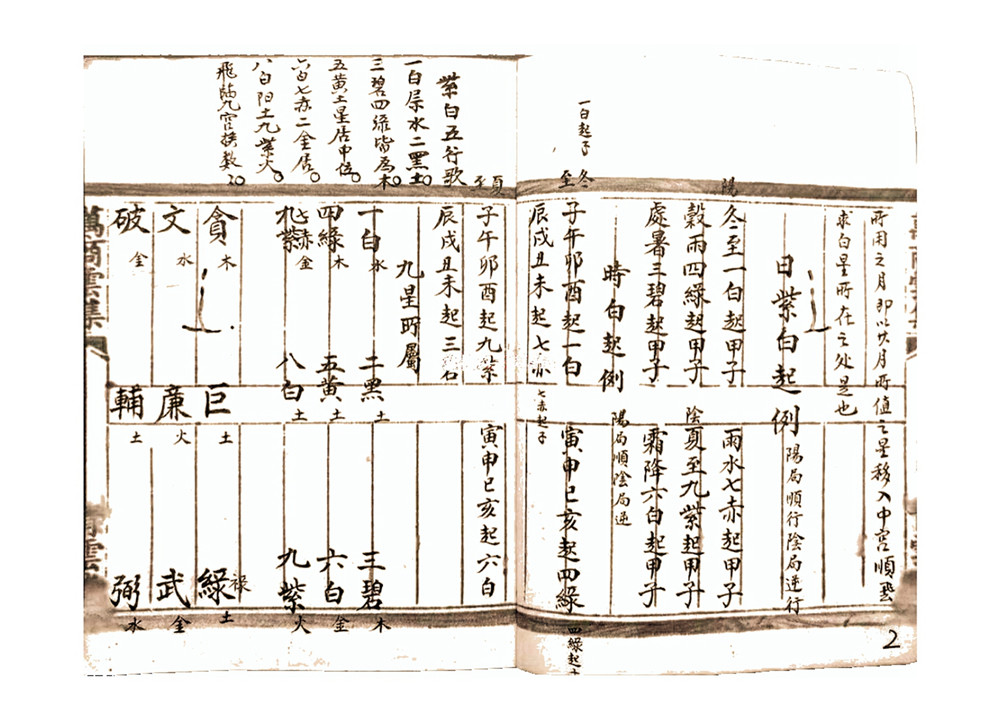 所用之月即以次月所值之星移入中宮順飛
求白星所在之处是也
日紫白起例 陽局順行陰局逆行
陽
冬至一白起甲子 雨水七赤起甲子
穀雨四綠起甲子 陰夏至九紫起甲子
處暑三碧起甲子 霜降六白起甲子
時白起例 陽局順陰局逆
一白起子
冬至
子午卯酉起一白 寅申巳亥起四綠
四綠起
辰戌丑未起七赤 七赤起子
夏至
子午卯酉起九紫 寅申巳亥起六白
辰戌丑未起三
紫白五行歌
一白屬水二黑土
三碧四綠皆為木
五黃土星居中位
六白七赤二金居
八白阳土九紫火
飛臨九宮
九星所屬
一白水 二黑土 三碧木
四綠木 五黃土 六白金
七赤金 八白土 九紫火
九紫
貪木 巨土 綠祿土
文水 廉火 武金
破金 輔土 弼水
萬商雲集
2